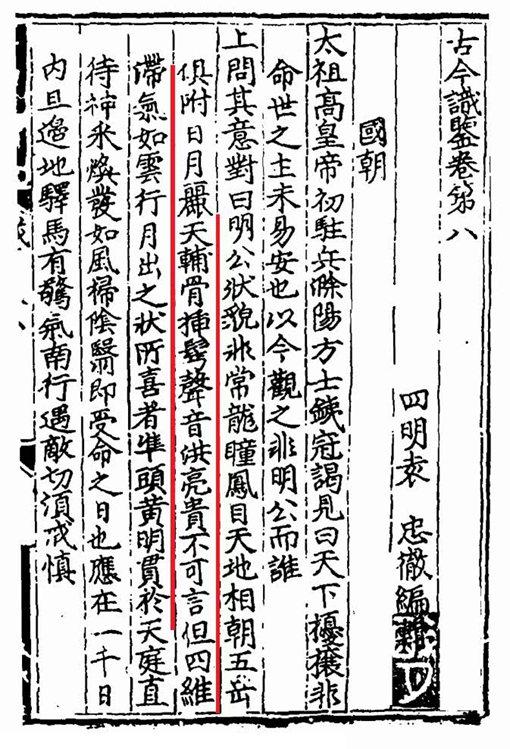 古今識鑒卷第八
四明袁 忠徹編輯
國朝
太祖髙皇帝初駐兵滁陽方士鐵冠謁見曰天下擾攘非
命世之主未易安也以今觀之非明公而誰
上問其意對曰明公狀貌非常龍瞳鳳目天地相朝五岳
俱附日月麗天輔骨揷鬂聲音洪亮貴不可言但四維
滯氣如雲行月出之狀所喜者準頭黃明貫於天庭直
待神采煥發如風掃陰翳即受命之日也應在一千日
内且邊地驛馬有驚氣南行遇敵切須戒慎